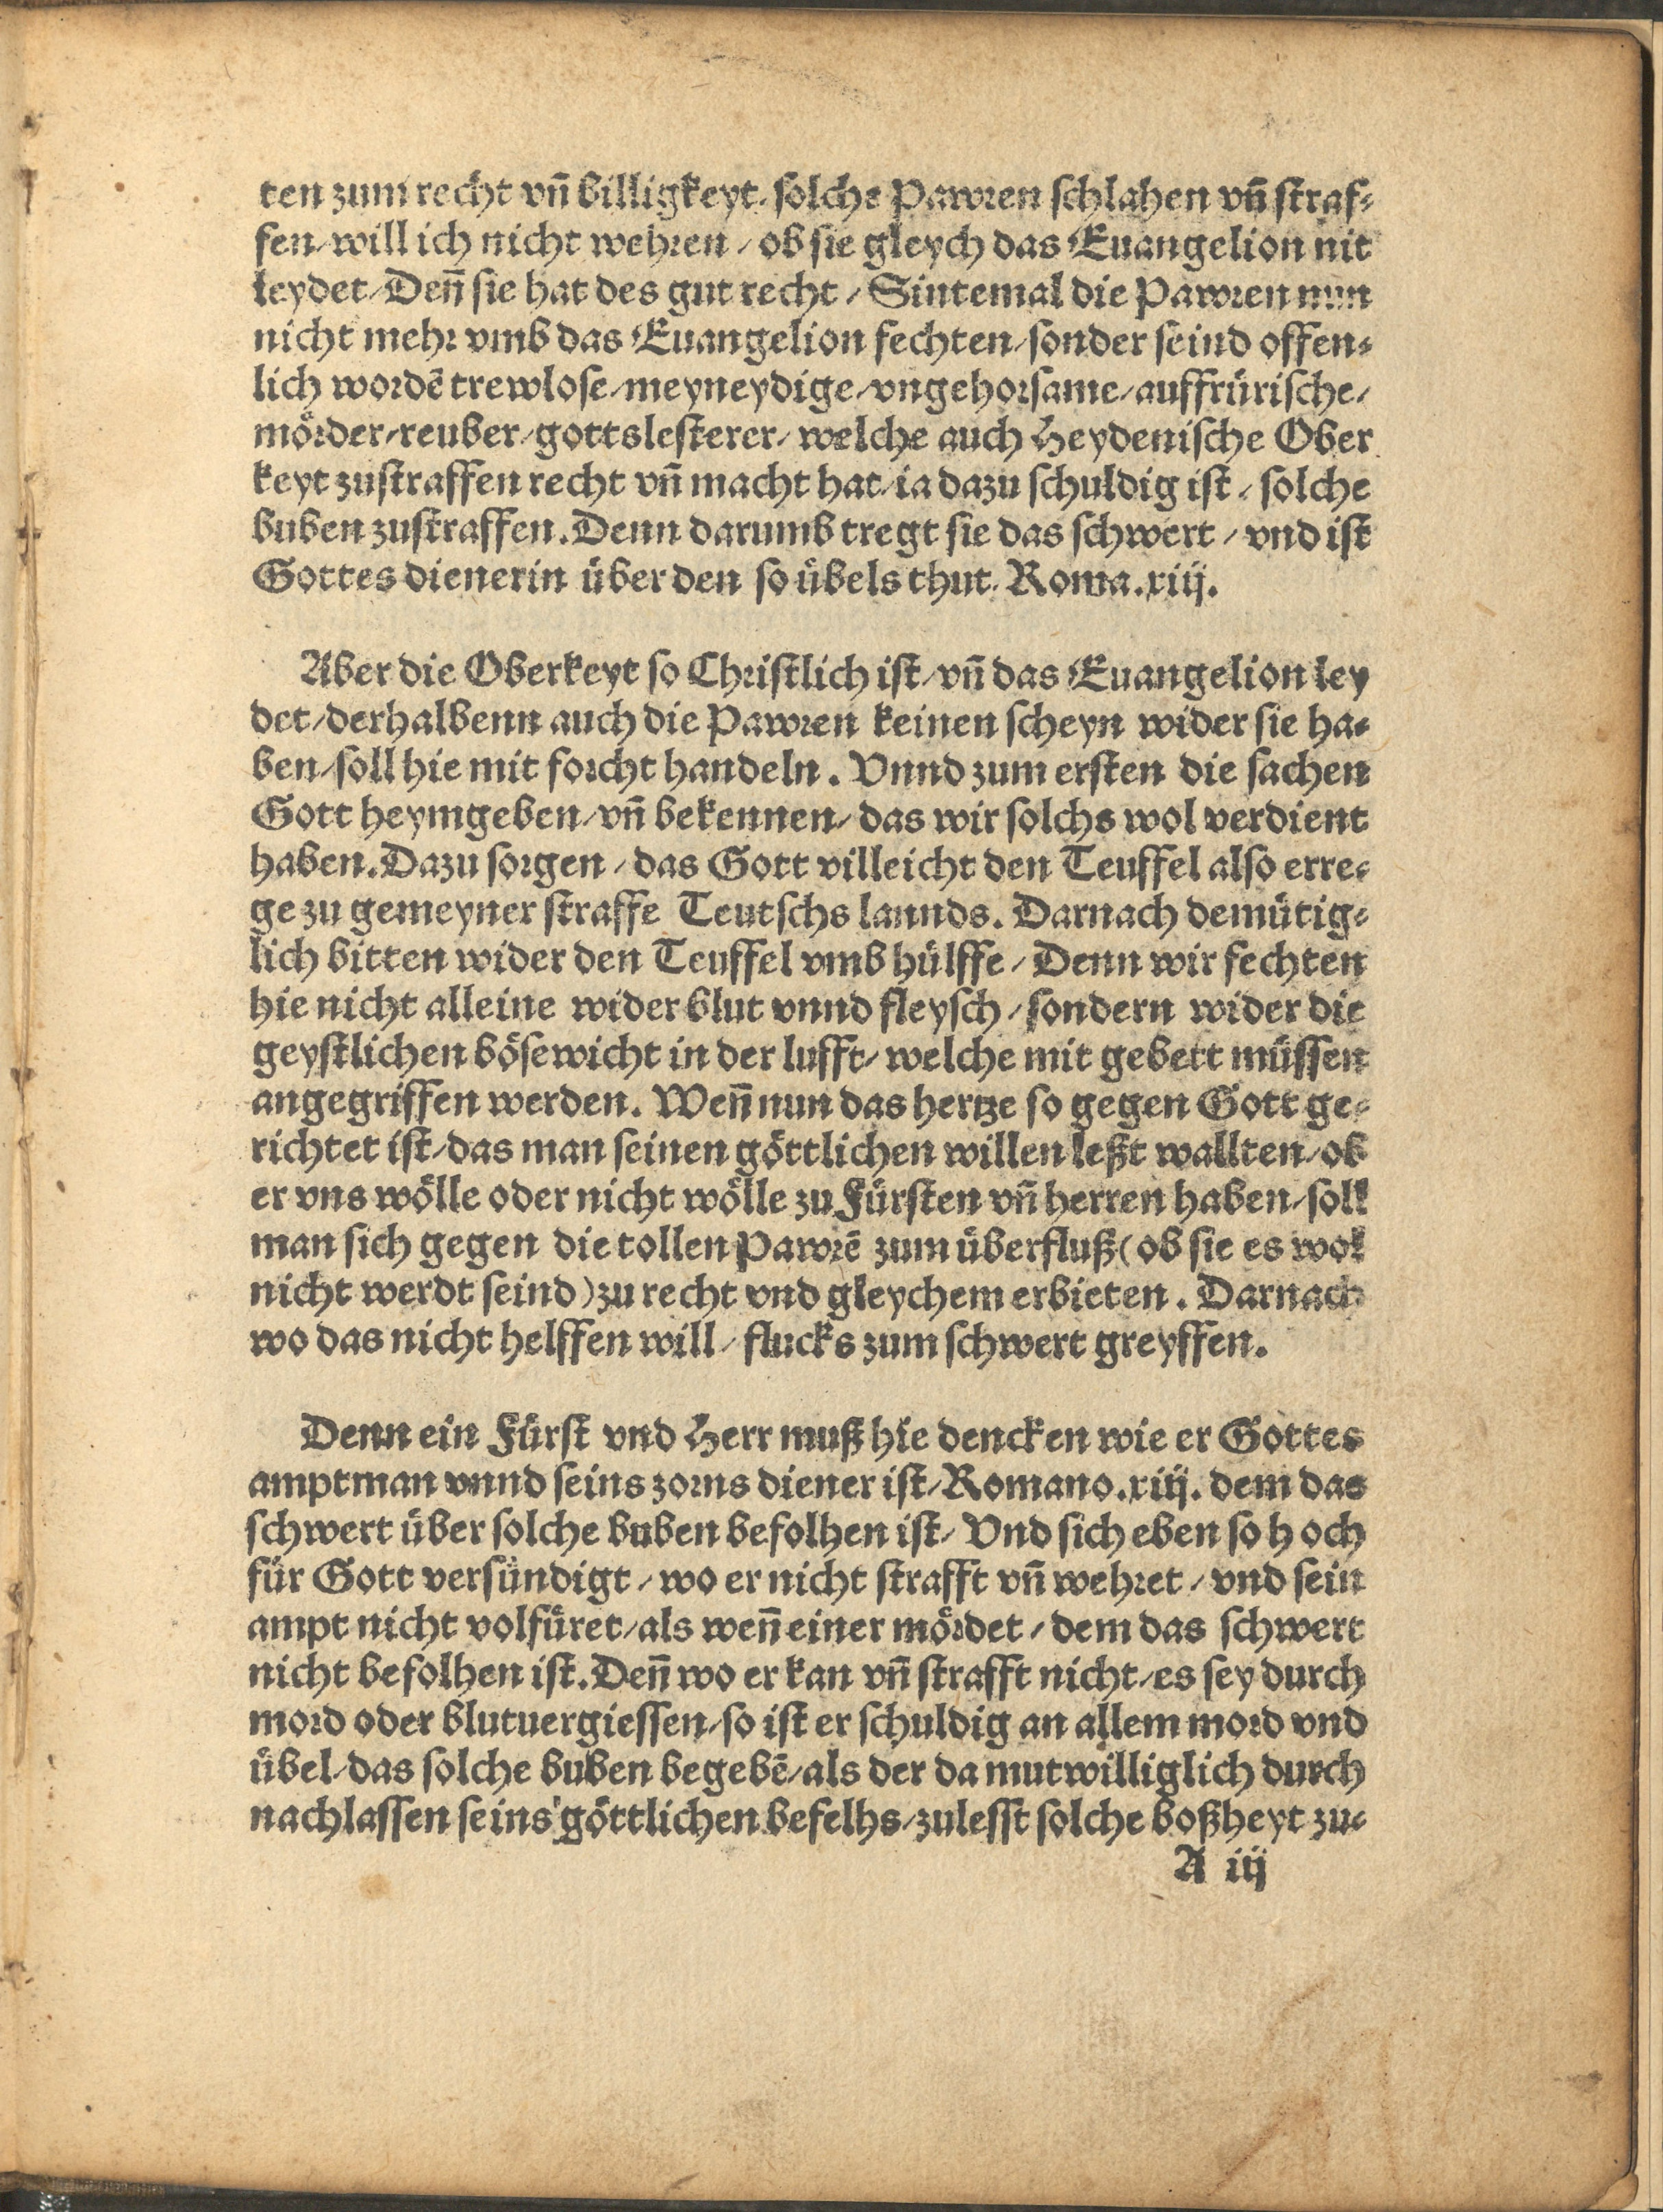 ten zum recht vñ billigkeyt / solche Pawren schlahen vñ straf⸗
fen / will ich nicht wehren / ob sie gleych das Euangelion nit
leydet / Deñ sie hat des gut recht / Sintemal die Pawren nun
nicht mehr vmb das Euangelion fechten / sonder seind offen⸗
lich wordē trewlose / meyneydige / vngehorsame / auffrürische /
mörder / reuber / gottslesterer / welche auch Heydenische Ober
keyt zustraffen recht vñ macht hat / ia dazu schuldig ist / solche
buben zustraffen. Denn darumb tregt sie das schwert / vnd ist
Gottes dienerin über den so übels thut. Roma. xiij.
Aber die Oberkeyt so Christlich ist / vñ das Euangelion ley
det / derhalbenn auch die Pawren keinen scheyn wider sie ha⸗
ben / soll hie mit forcht handeln. Vnnd zum ersten die sachen
Gott heymgeben / vñ bekennen / das wir solchs wol verdient
haben. Dazu sorgen / das Gott villeicht den Teuffel also erre⸗
ge zu gemeyner straffe Teutschs lannds. Darnach demütig⸗
lich bitten wider den Teuffel vmb hülffe / Denn wir fechten
hie nicht alleine wider blut vnnd fleysch / sondern wider die
geystlichen bösewicht in der lufft / welche mit gebett müssen
angegriffen werden. Weñ nun das hertze so gegen Gott ge⸗
richtet ist / das man seinen göttlichen willen leßt wallten / ob
er vns wölle oder nicht wölle zu Fürsten vñ herren haben / soll
man sich gegen die tollen Pawrē zum überfluß (ob sie es wol
nicht werdt seind) zu recht vnd gleychem erbieten. Darnach
wo das nicht helffen will / flucks zum schwert greyffen.
Denn ein Fürst vnd Herr muß hie dencken wie er Gottes
amptman vnnd seins zorns diener ist / Romano. xiij. dem das
schwert über solche buben befolhen ist / Vnd sich eben so hoch
für Gott versündigt / wo er nicht strafft vñ wehret / vnd sein
ampt nicht volfüret / als weñ einer mördet / dem das schwert
nicht befolhen ist. Deñ wo er kan vñ strafft nicht / es sey durch
mord oder blutuergiessen / so ist er schuldig an allem mord vnd
übel / das solche buben begebē / als der da mutwilliglich durch
nachlassen seins göttlichen befelhs / zulesst solche boßheyt zu⸗
A iij